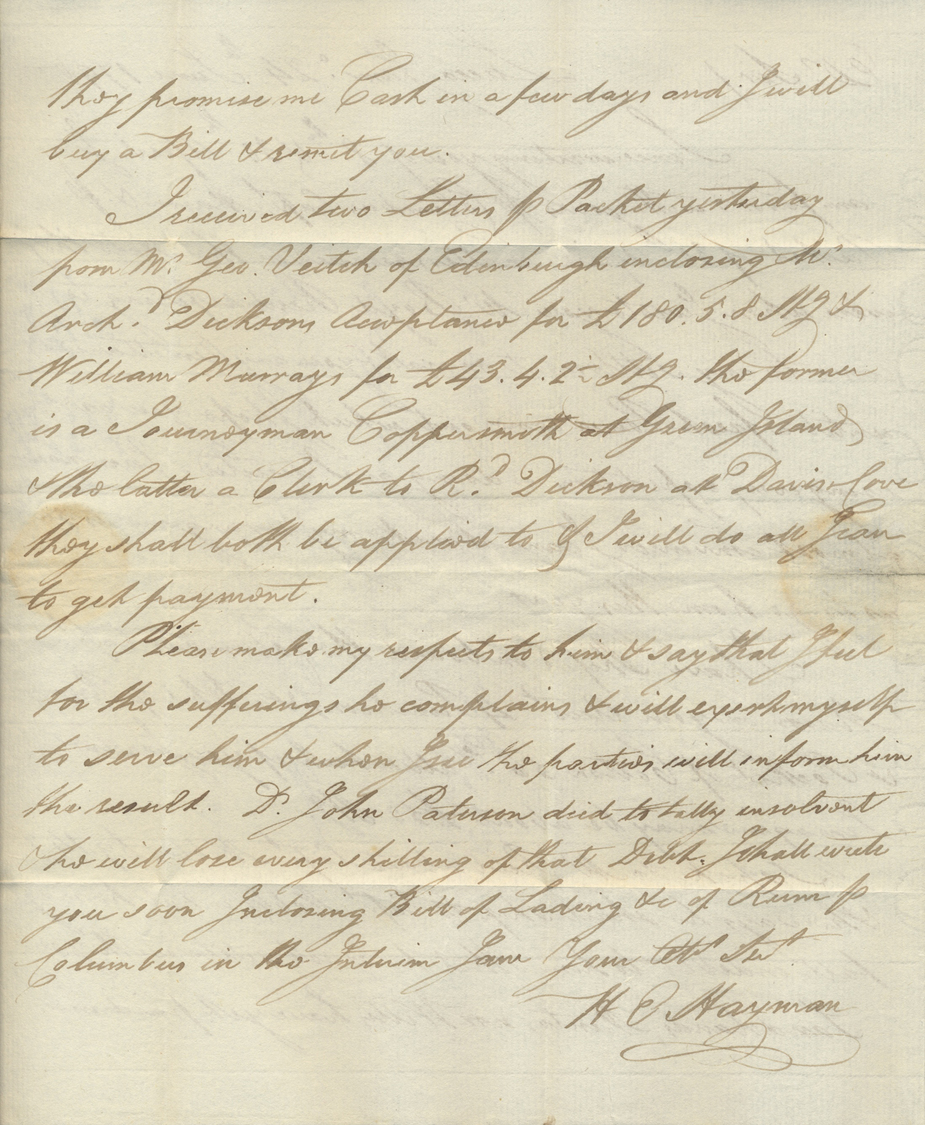 they promise me Cash in a few days and I will
buy a Bill & remit you.
I received two Letters ⅌ Packet yesterday
from Mr. Geo. Veitch of Edenburgh inclosing Mr.
Archd. Dicksons Acceptance for £180.5.8 Stg &
William Murrays for £43.4.2½ Stg. the former
is a Journeyman Coppersmith at Green Island
& the latter a Clerk to Rd. Dickson at Davis Cove
they shall both be applied to & I will do all I can
to get payment.
Please make my respects to him & say that I feel
for the sufferings he complains & will exert myself
to serve him & when I see the parties will inform him
the result. Dr. John Paterson died totally insolvent
& he will lose every shilling of that Debt. I shall write
you soon Inclosing Bill of Lading &c of Rum ⅌
Columbus in the Interim I am Your Obt Sert
H O Hayman